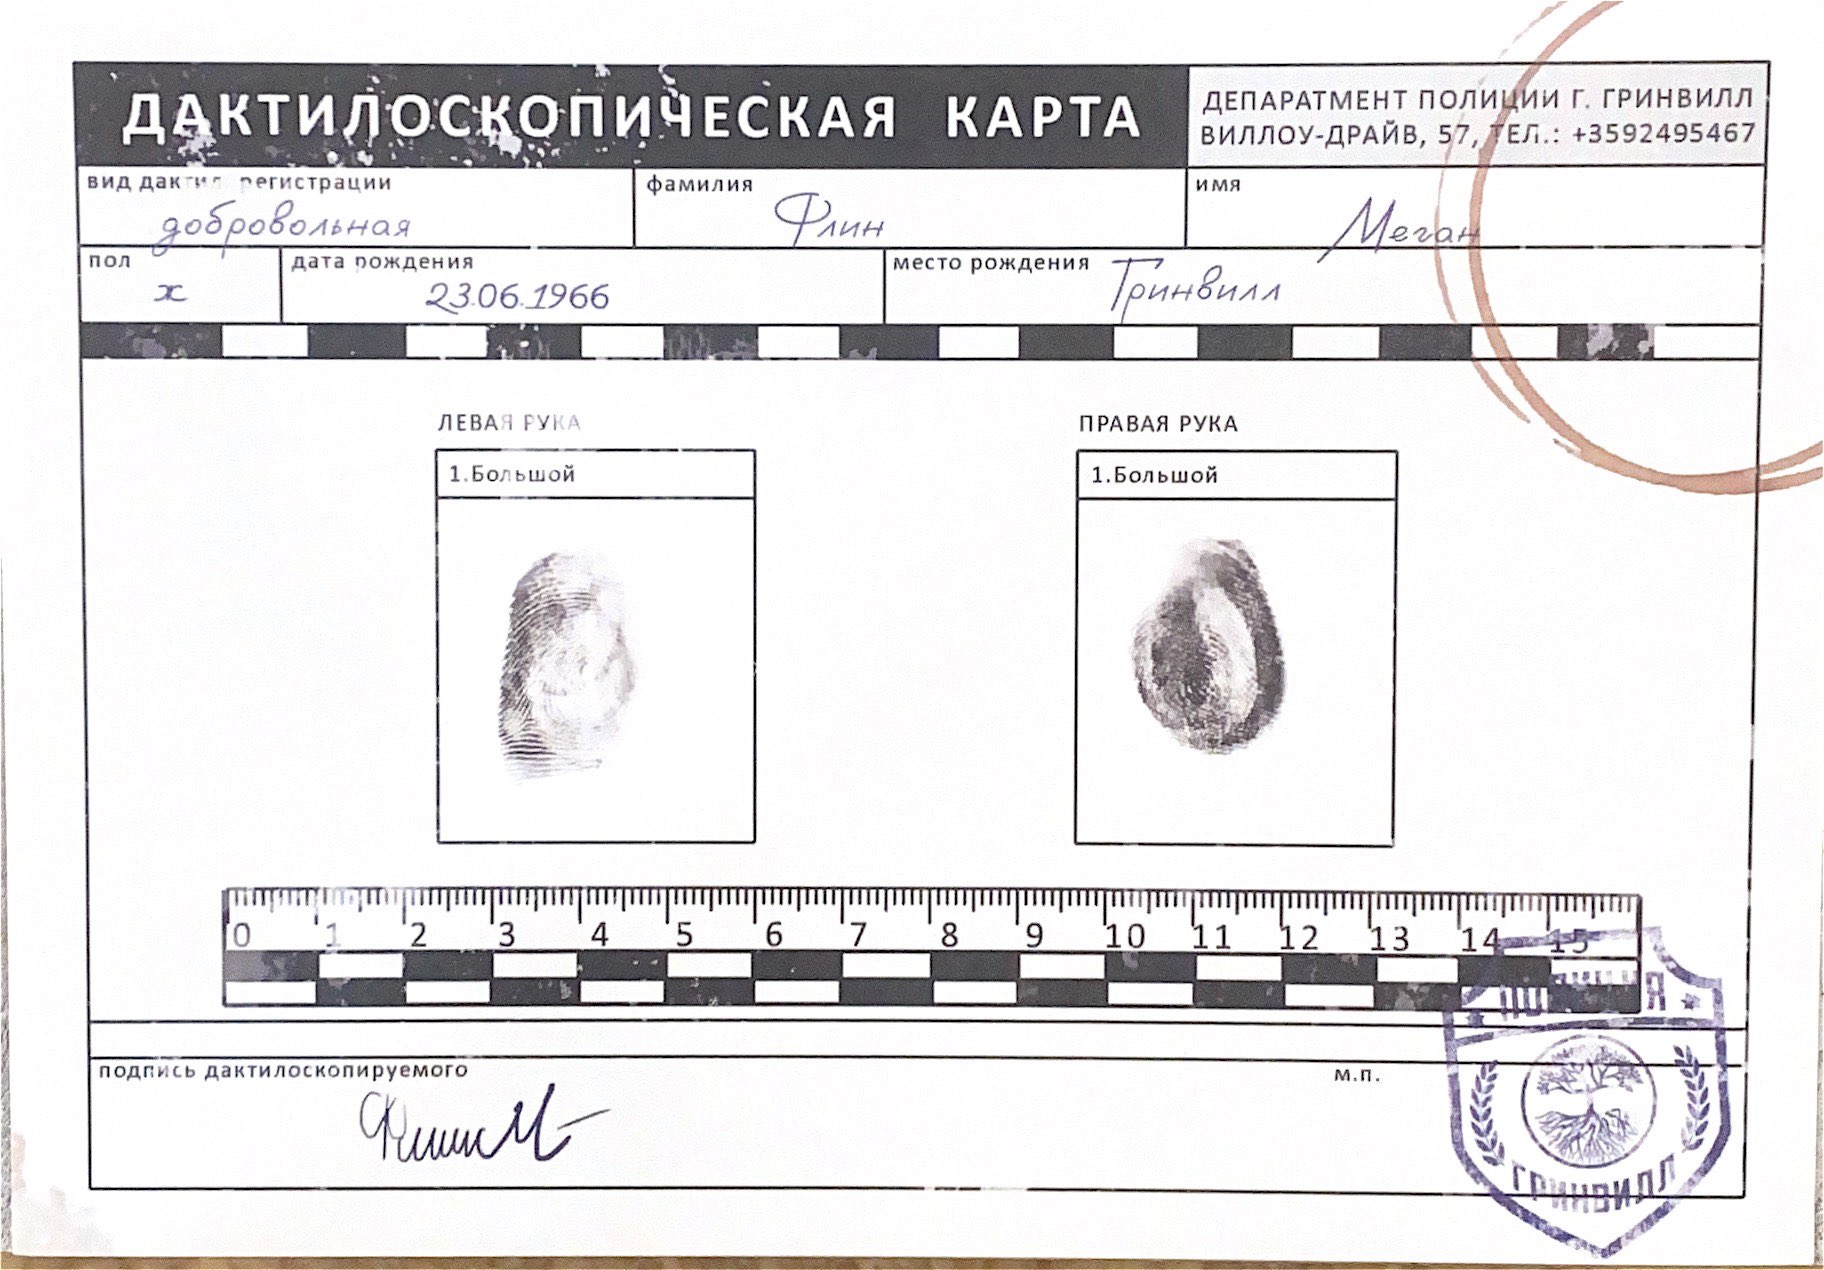 ДАКТИЛОСКОПИЧЕСКАЯ КАРТА
ДЕПАРАТМЕНТ ПОЛИЦИИ Г. ГРИНВИЛЛ
ВИЛЛОУ-ДРАЙВ, 57, ТЕЛ.: +3592495467
вид дактил. регистрации
добровольная
фамилия
Флин
имя
Меган
пол
ж
дата рождения
23.06.1966
место рождения
Гринвилл
ЛЕВАЯ РУКА
1.Большой
ПРАВАЯ РУКА
1.Большой
0 1 2 3 4 5 6 7 8 9 10 11 12 13 14 15
подпись дактилоскопируемого
Флин М
м.п.
ПОЛИЦИЯ
ГРИНВИЛЛ